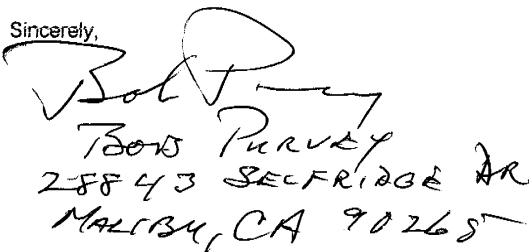 Sincerely,
Bob Purvey
Bob Purvey
28843 Selfridge Dr.
Malibu, CA 90265